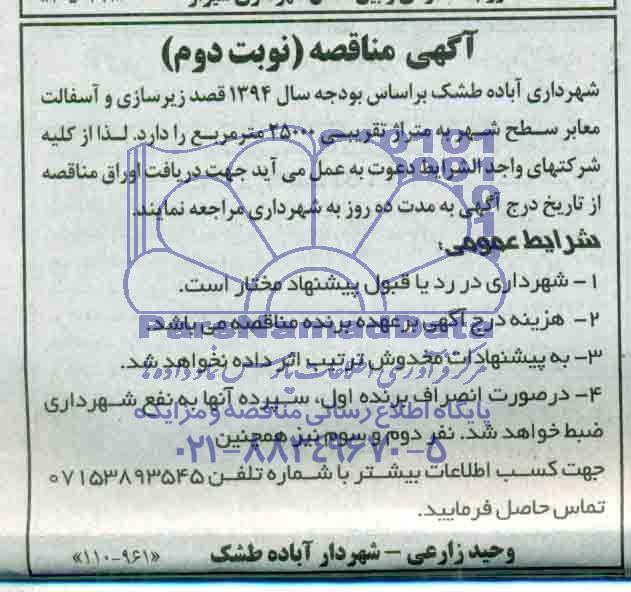 آگهی مناقصه (نوبت دوم)
شهرداری آباده طشک براساس بودجه سال ۱۳۹۴ قصد زیرسازی و آسفالت
معابر سطح شهر به متراژ تقریبی ۲۵۰۰۰ مترمربع را دارد. لذا از کلیه
شرکتهای واجد الشرایط دعوت به عمل می آید جهت دریافت اوراق مناقصه
از تاریخ درج آگهی به مدت ده روز به شهرداری مراجعه نمایند.
شرایط عمومی:
۱- شهرداری در رد یا قبول پیشنهاد مختار است.
۲- هزینه درج آگهی برعهده برنده مناقصه می باشد.
ParsNamadData
۳- به پیشنهادات مخدوش ترتیب اثر داده نخواهد شد.
مرکز فرآوری اطلاعات پارس نماد داده ها
۴- درصورت انصراف برنده اول، سپرده آنها به نفع شهرداری
پایگاه اطلاع رسانی مناقصه و مزایده
ضبط خواهد شد. نفر دوم و سوم نیز همچنین
۰۲۱-۸۸۳۴۹۶۷۰-۵
جهت کسب اطلاعات بیشتر با شماره تلفن ۰۷۱۵۳۸۹۳۵۴۵
تماس حاصل فرمایید.
وحید زارعی - شهردار آباده طشک «۱۱۰-۹۶۱»